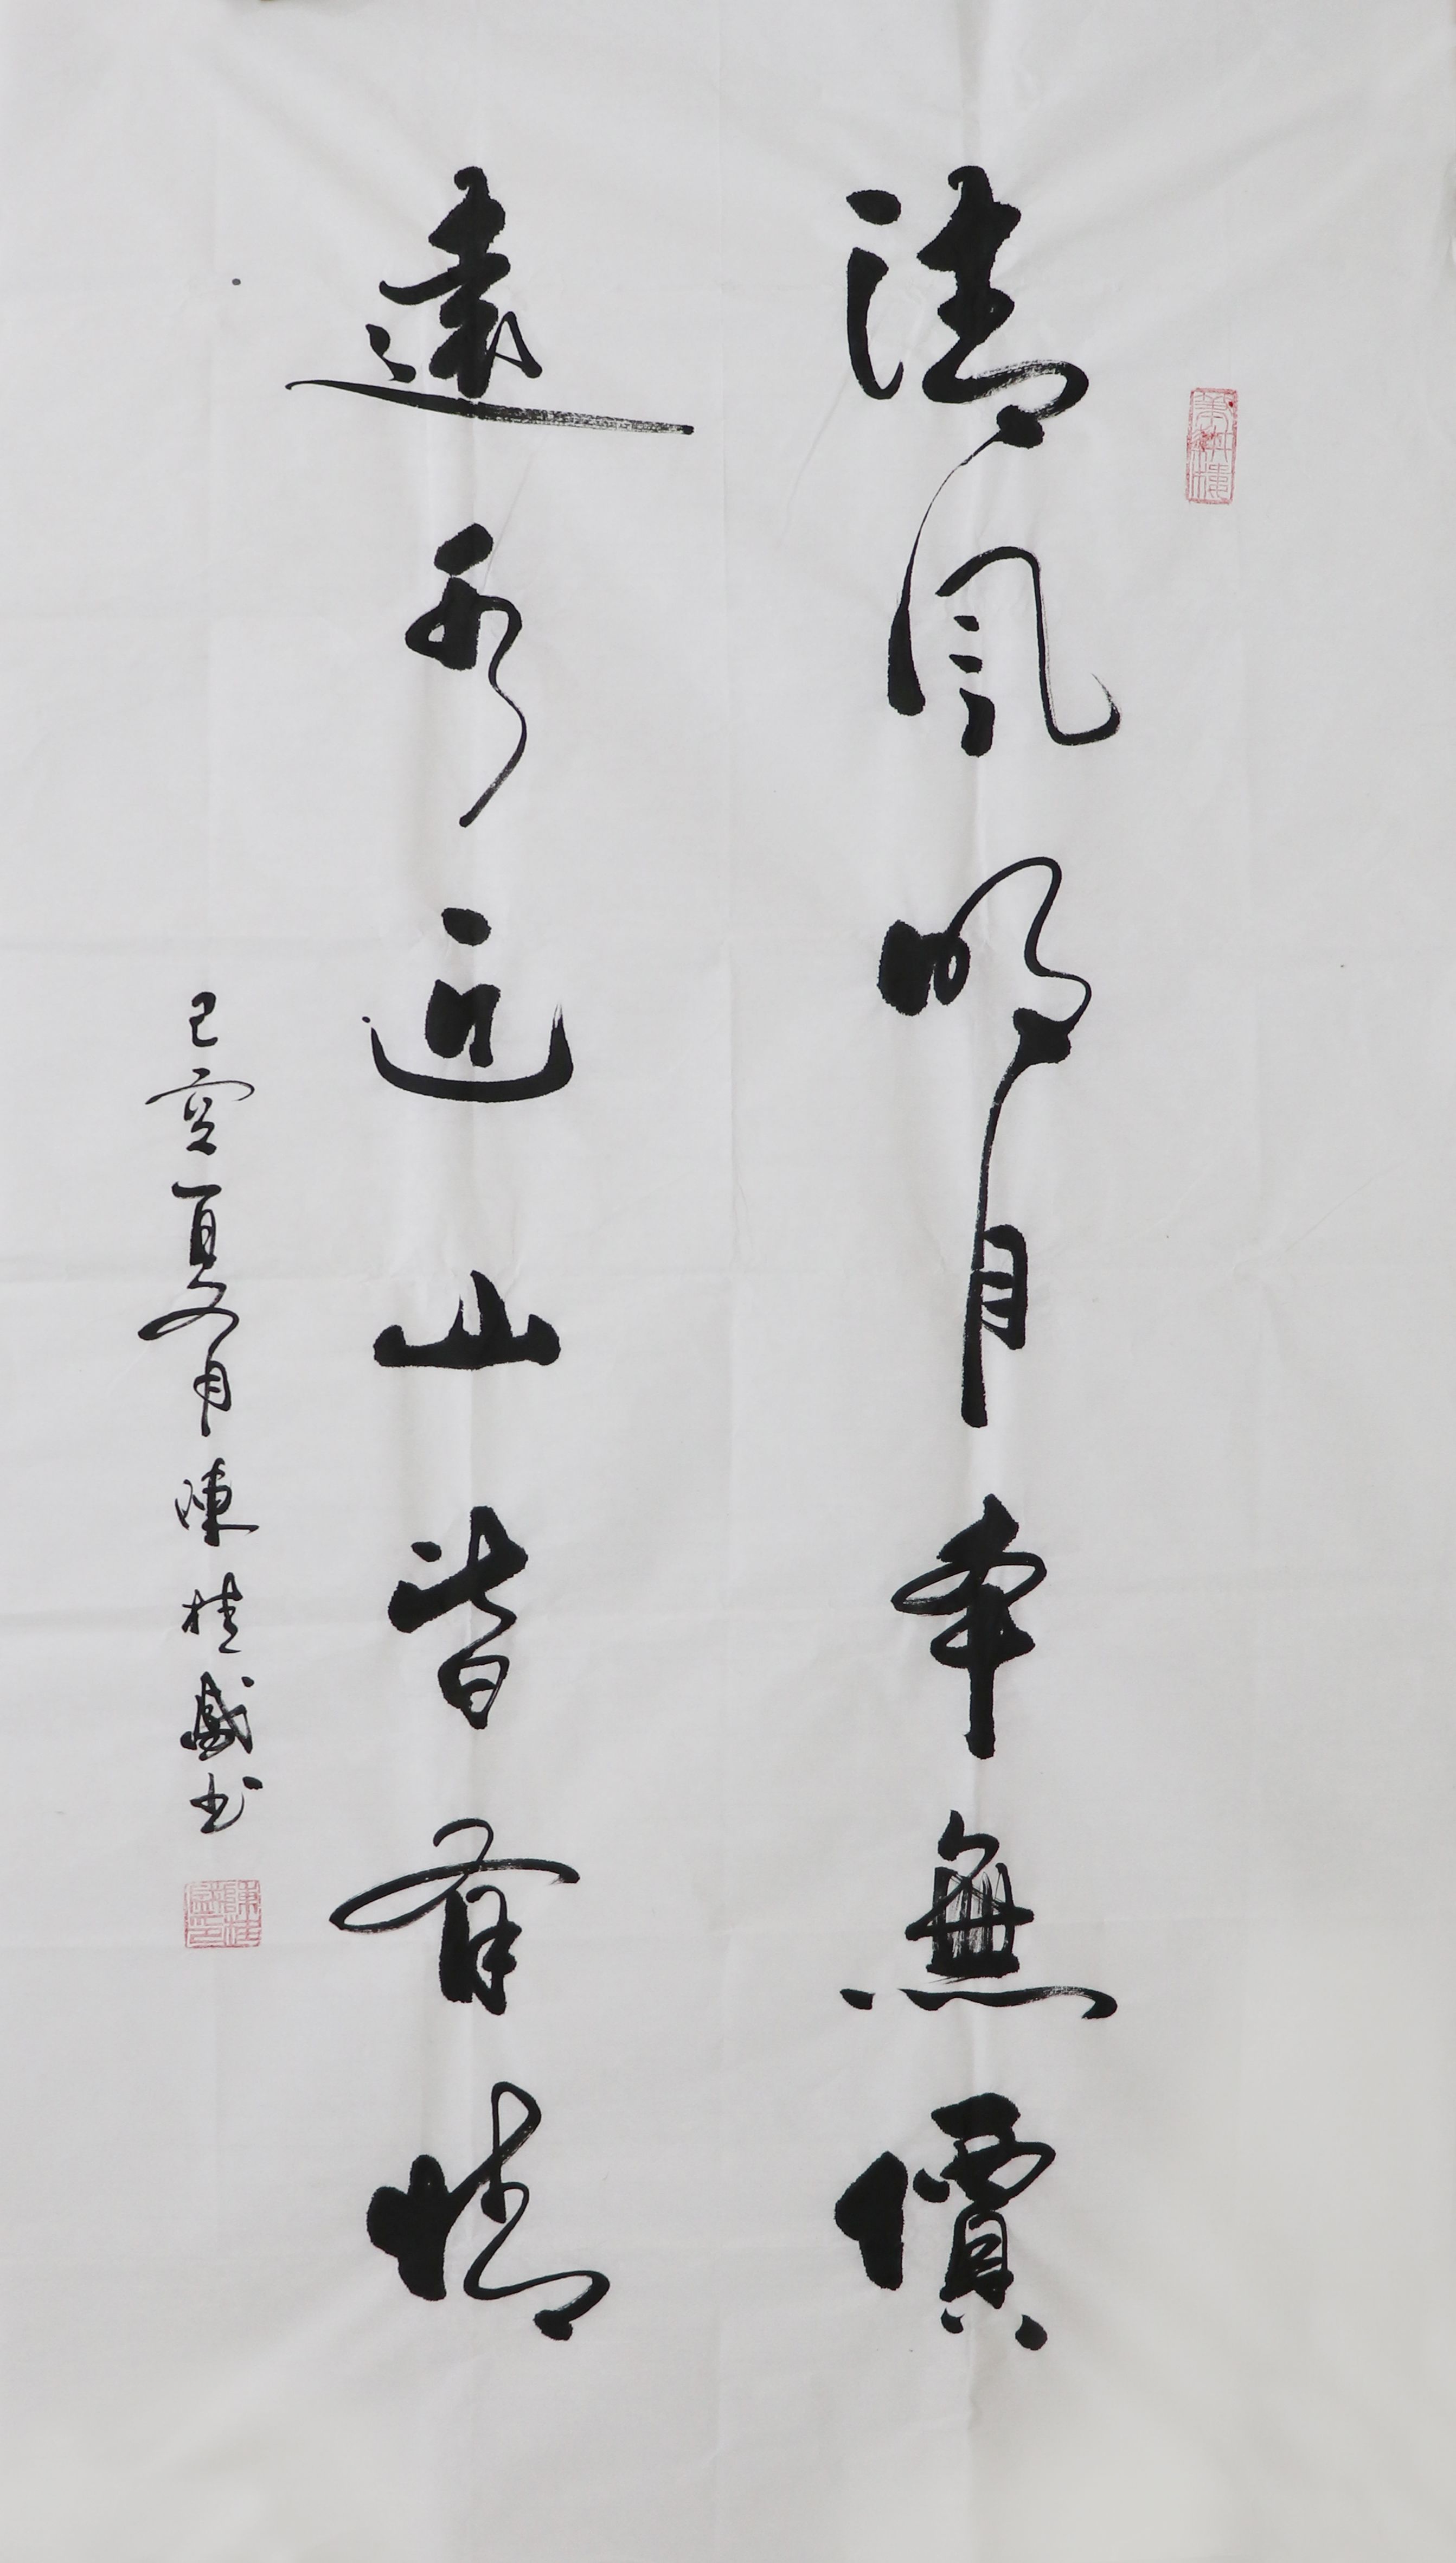 清風明月本無價
遠水近山皆有情
己亥夏月陳桂盛书